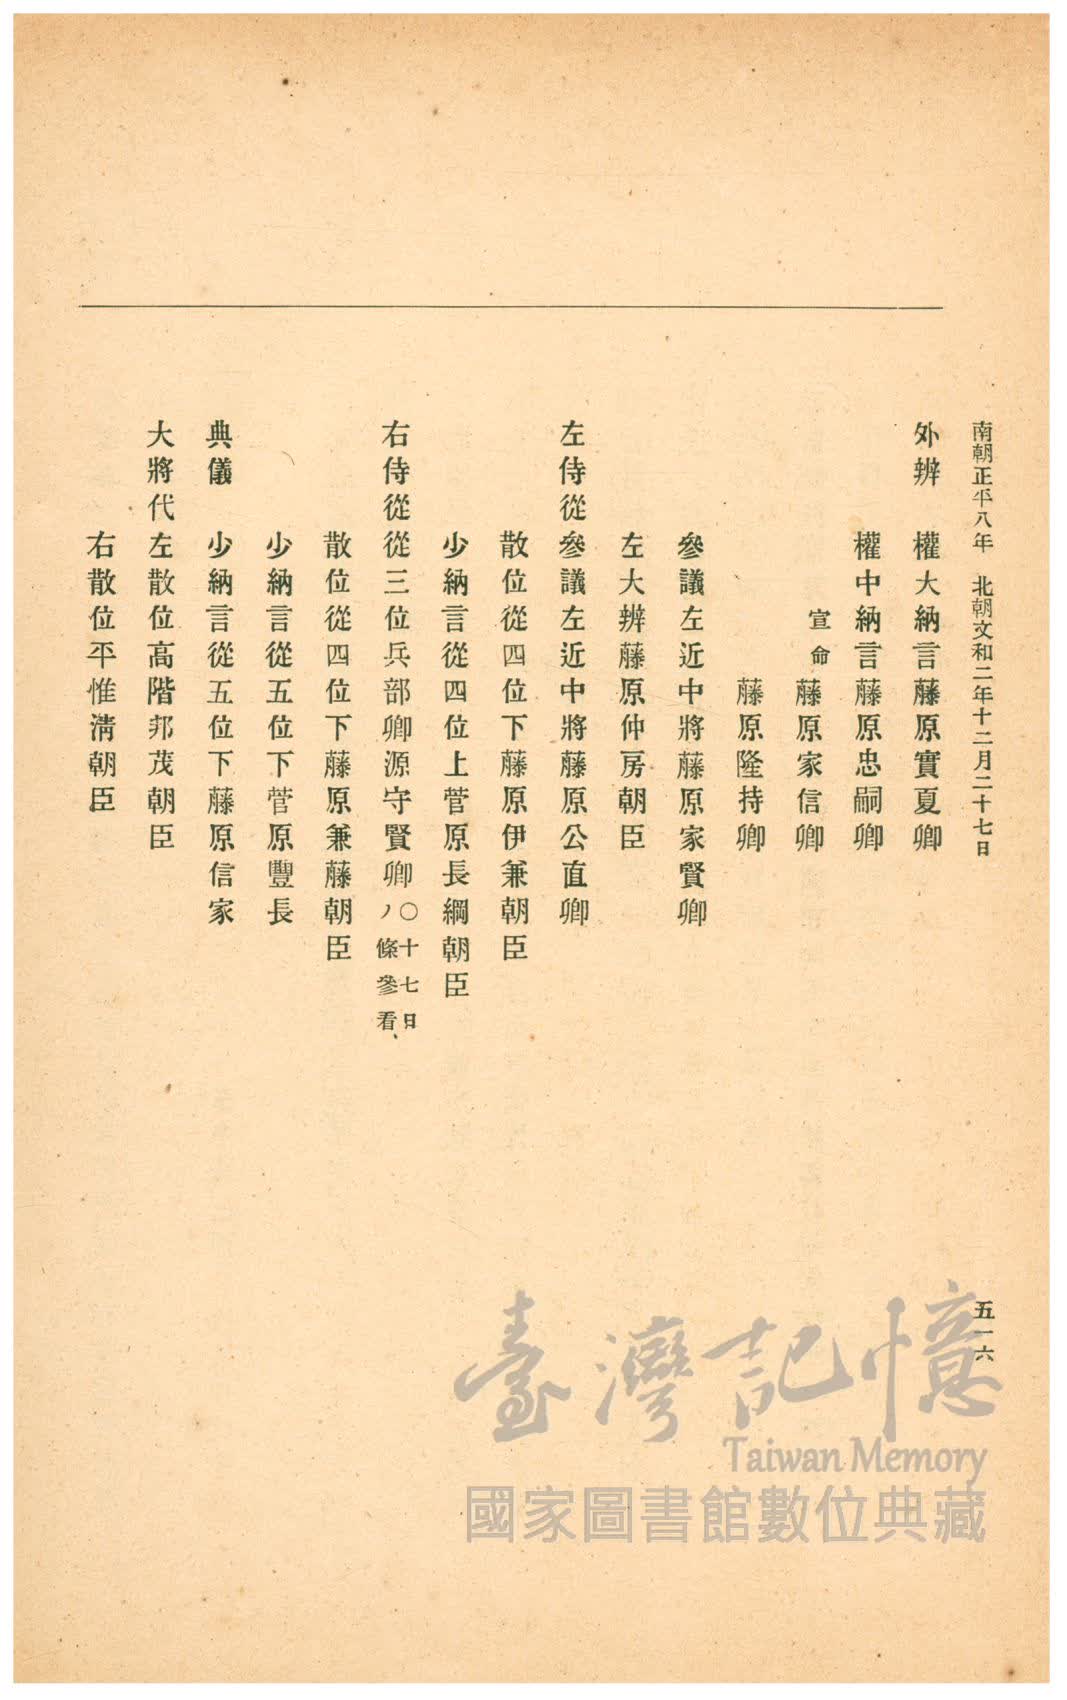 南朝正平八年　北朝文和二年十二月二十七日
五一六
外辨　權大納言藤原實夏卿
權中納言藤原忠嗣卿
宣命　藤原家信卿
藤原隆持卿
參議左近中將藤原家賢卿
左大辨藤原仲房朝臣
左侍從參議左近中將藤原公直卿
散位從四位下藤原伊兼朝臣
少納言從四位上菅原長綱朝臣
右侍從從三位兵部卿源守賢卿〇十七日ノ條參看、
散位從四位下藤原兼藤朝臣
少納言從五位下菅原豐長
典儀　少納言從五位下藤原信家
大將代左散位高階邦茂朝臣
右散位平惟淸朝臣
臺灣記憶
Taiwan Memory
國家圖書館數位典藏